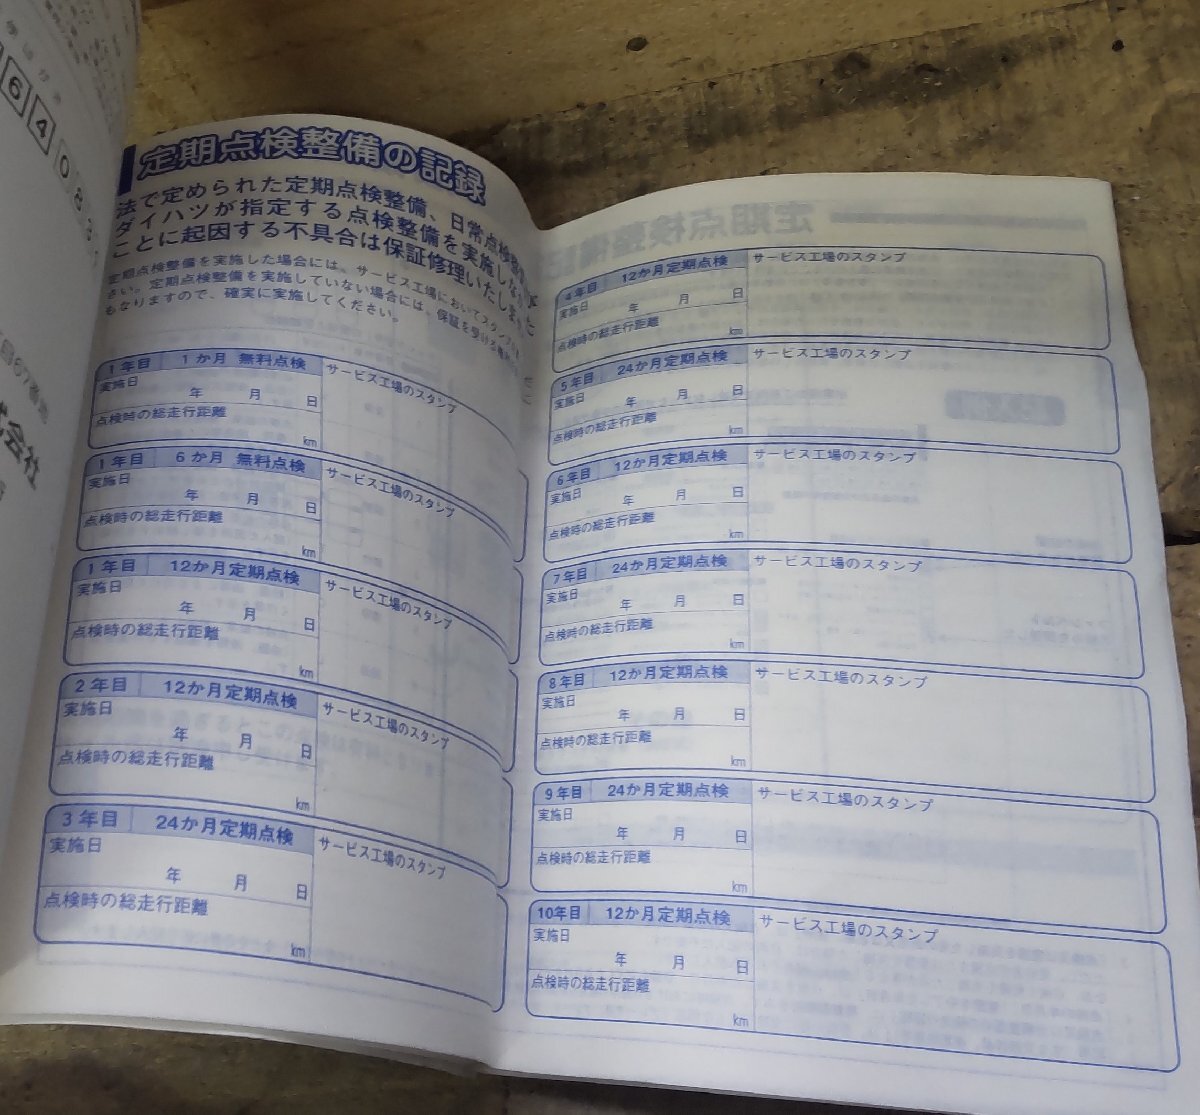 6 4 0 8
定期点検整備の記録
法で定められた定期点検整備、日常点検整備
ダイハツが指定する点検整備を実施しなかった
ことに起因する不具合は保証修理いたしません
定期点検整備を実施した場合には、サービス工場においてスタンプ
さい。定期点検整備を実施していない場合には、保証を受ける
もなりますので、確実に実施してください。
1年目 1か月 無料点検 サービス工場のスタンプ
実施日
年 月 日
点検時の総走行距離
km
1年目 6か月 無料点検 サービス工場のスタンプ
実施日
年 月 日
点検時の総走行距離
km
1年目 12か月定期点検 サービス工場のスタンプ
実施日
年 月 日
点検時の総走行距離
km
2年目 12か月定期点検 サービス工場のスタンプ
実施日
年 月 日
点検時の総走行距離
km
3年目 24か月定期点検 サービス工場のスタンプ
実施日
年 月 日
点検時の総走行距離
km
4年目 12か月定期点検 サービス工場のスタンプ
実施日
年 月 日
点検時の総走行距離
km
5年目 24か月定期点検 サービス工場のスタンプ
実施日
年 月 日
点検時の総走行距離
km
6年目 12か月定期点検 サービス工場のスタンプ
実施日
年 月 日
点検時の総走行距離
km
7年目 24か月定期点検 サービス工場のスタンプ
実施日
年 月 日
点検時の総走行距離
km
8年目 12か月定期点検 サービス工場のスタンプ
実施日
年 月 日
点検時の総走行距離
km
9年目 24か月定期点検 サービス工場のスタンプ
実施日
年 月 日
点検時の総走行距離
km
10年目 12か月定期点検 サービス工場のスタンプ
実施日
年 月 日
点検時の総走行距離
km